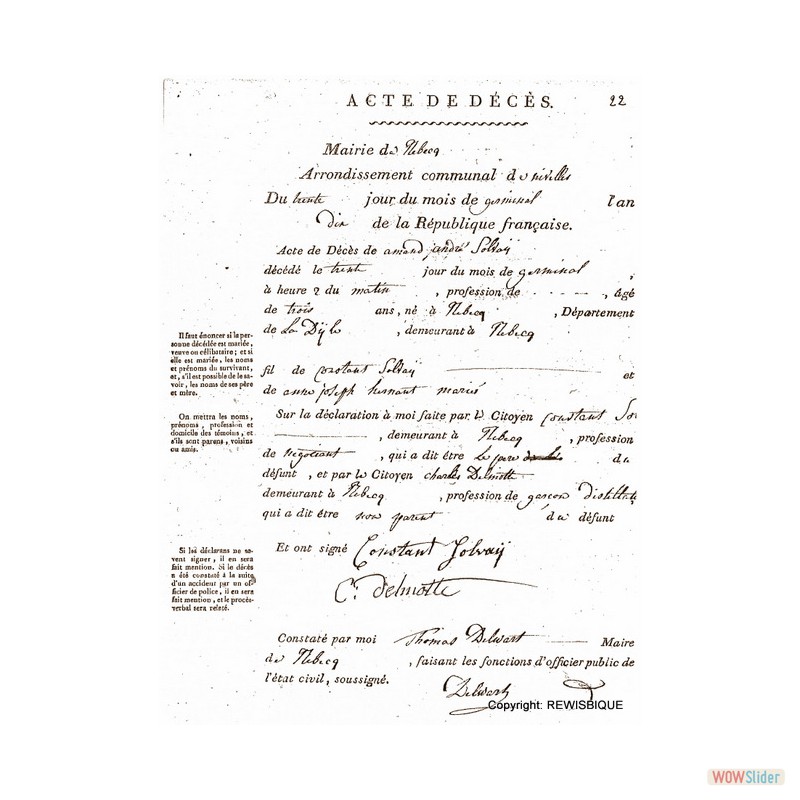 ACTE DE DÉCÈS. 22
Mairie de Rebecq
Arrondissement communal de nivelles
Du trente jour du mois de germinal l'an
dix de la République française.
Acte de Décès de amand andré Solvaÿ
décédé le trente jour du mois de germinal ,
à heure 2 du matin , profession de - - - - , âgé
de trois ans, né à Rebecq , Département
de La Dÿle , demeurant à Rebecq
Il faut énoncer si la per-
sonne décédée est mariée,
veuve ou célibataire; et si
elle est mariée, les noms
et prénoms du survivant,
et, s'il est possible de le sa-
voir, les noms de ses père
et mère.
fil de constant Solvaÿ et
de anne joseph hernant mariés
On mettra les noms,
prénoms, profession et
domicile des témoins, et
s'ils sont parens, voisins
ou amis.
Sur la déclaration à moi faite par le Citoyen Constant Sol
, demeurant à Rebecq , profession
de negotiant , qui a dit être le pere du
défunt , et par le Citoyen charles Delmotte
demeurant à Rebecq , profession de garcon distillate
qui a dit être non parent du défunt
Si les déclarans ne sa-
vent signer, il en sera
fait mention. Si le décès
a été constaté à la suite
d'un accident par un of-
ficier de police, il en sera
fait mention, et le procès-
verbal sera relaté.
Et ont signé Constant Solvaÿ
C. delmotte
Constaté par moi Thomas Delwart Maire
de Rebecq , faisant les fonctions d'officier public de
l'état civil, soussigné.
Delwart
Copyright: REWISBIQUE
WOWSlider